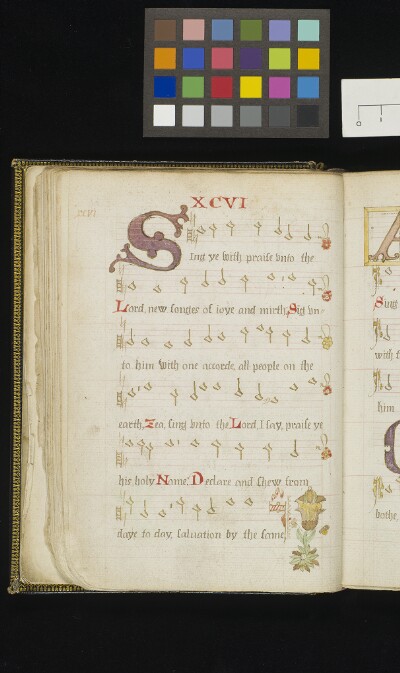 XCVI
XCVI
Sing ye with praise vnto the
Lord, new songes of ioye and mirth, Sig vn-
to him with one accorde, all people on the
earth, Zea, sing vnto the Lord, I say, praise ye
his holy Name, Declare and shew from
daye to day, saluation by the same,
A
Sing
with t
him
bothe,
0
1